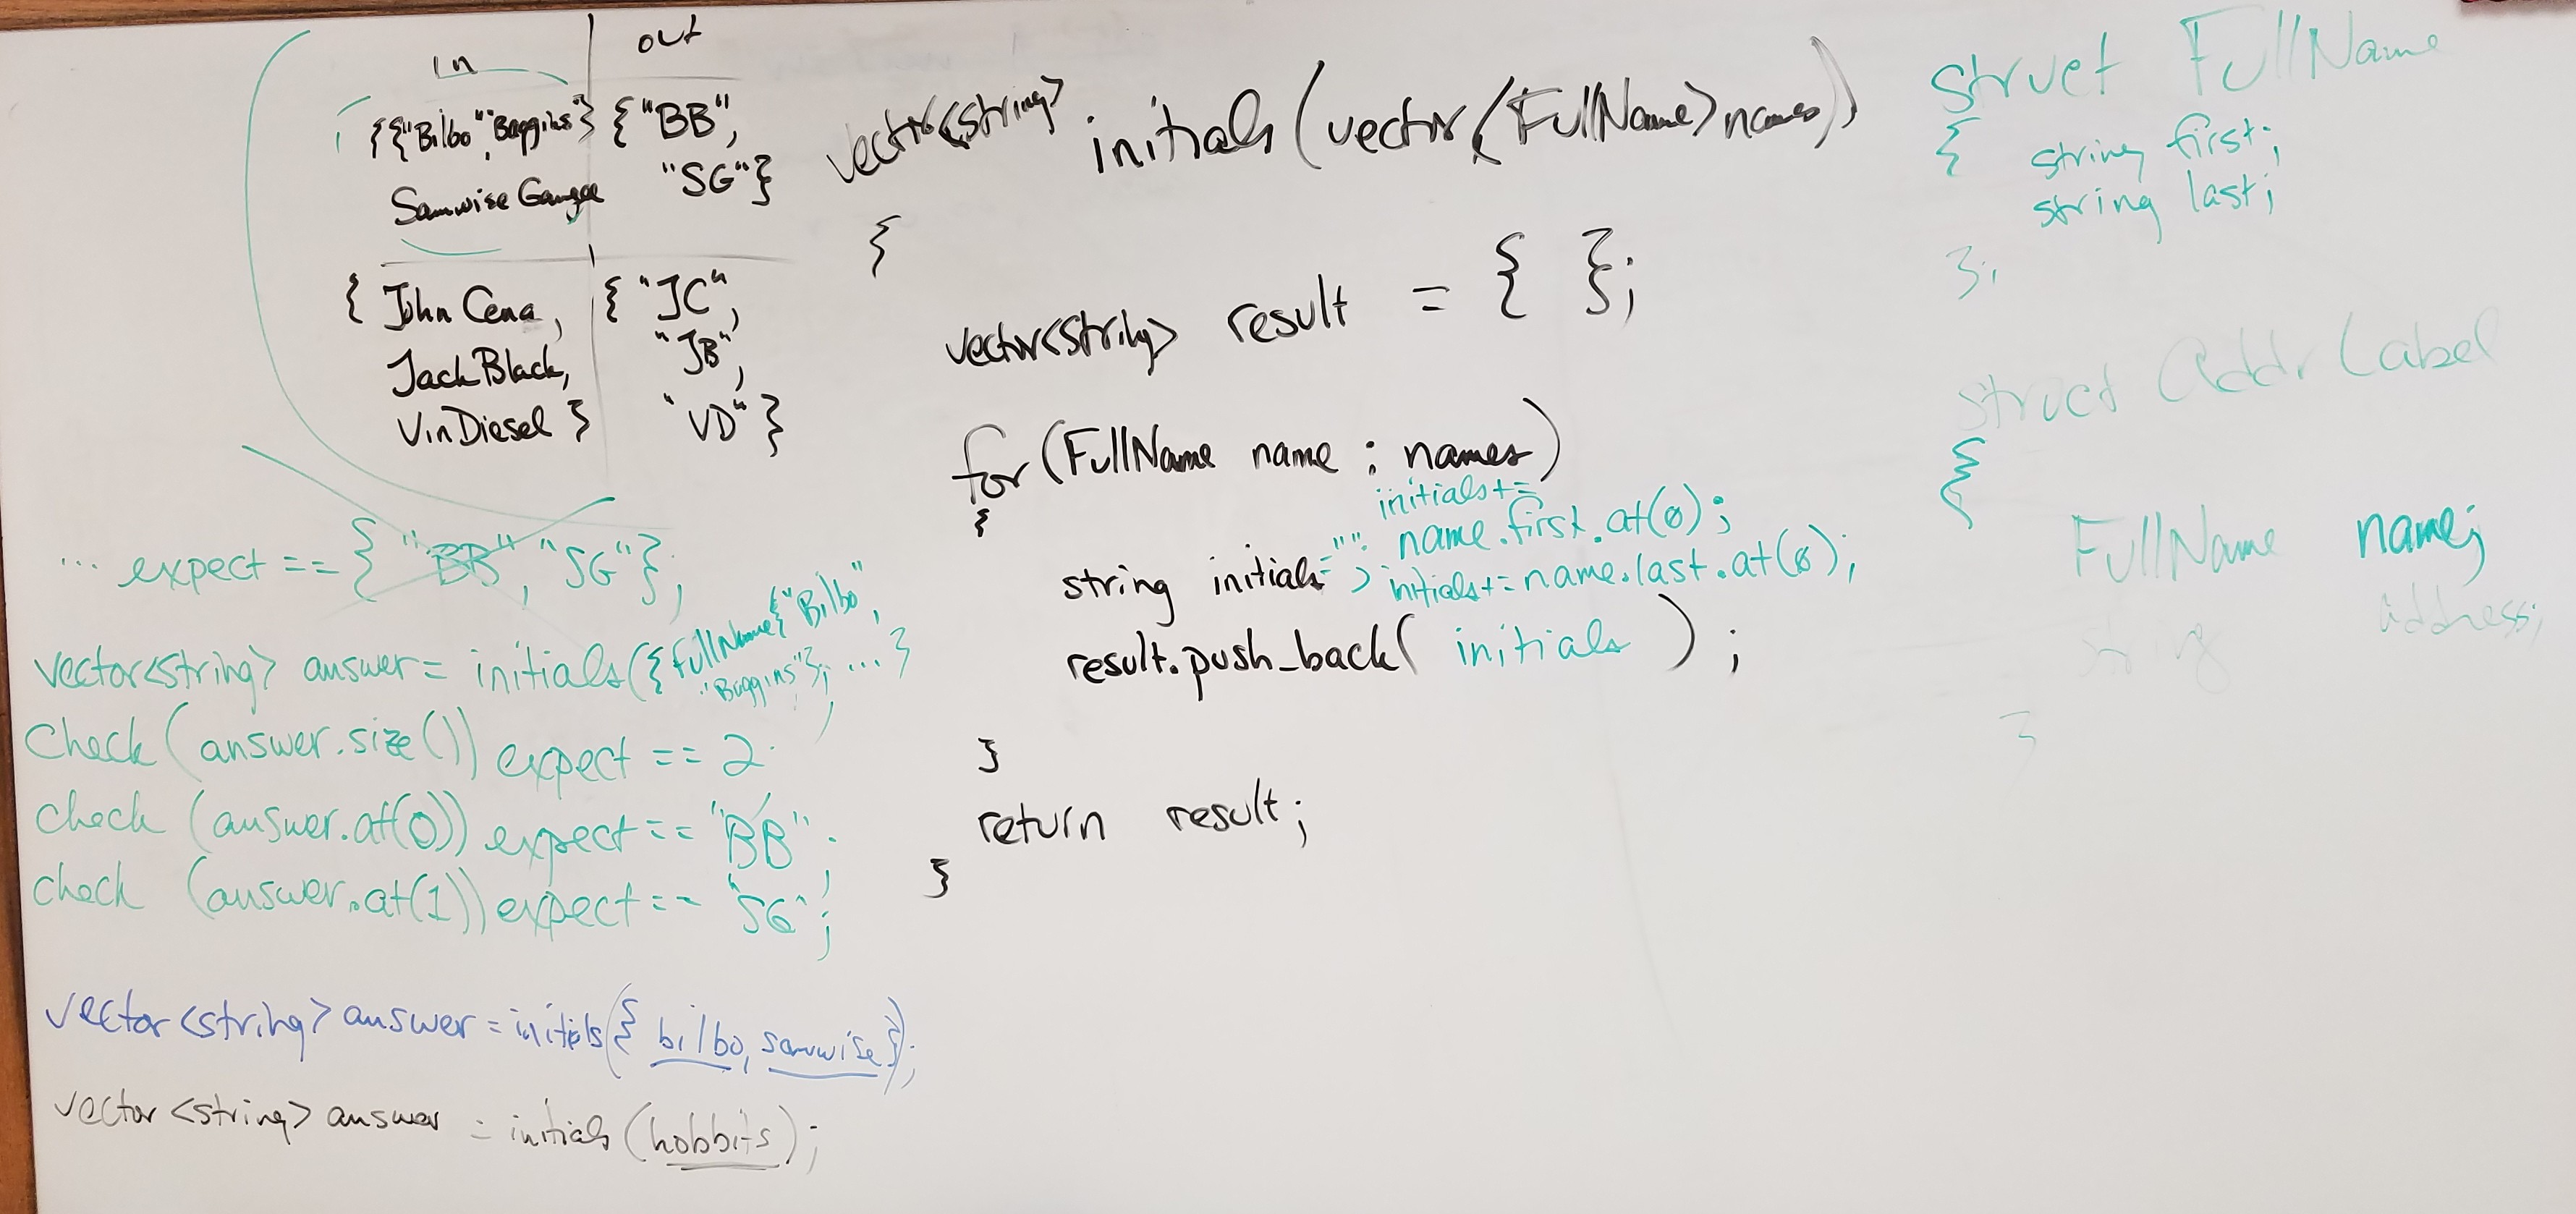 in | out
{{"Bilbo", "Baggins"} {"BB",
Samwise Gamgee "SG"}
{ John Cena, {"JC",
Jack Black, "JB",
Vin Diesel } "VD"}
... expect == { "BB", "SG"};
vector<string> answer = initials({FullName{"Bilbo",
"Baggins"}, ... }
Check (answer.size()) expect == 2;
check (answer.at(0)) expect == "BB";
check (answer.at(1)) expect == "SG";
vector<string> answer = initials({ bilbo, samwise });
vector<string> answer = initials (hobbits);
vector<string> initials (vector<FullName> names)
{
vector<string> result = { };
for (FullName name : names)
{
initials +=
string initials = ""; name.first.at(0);
initials += name.last.at(0);
result.push_back( initials );
}
return result;
}
struct FullName
{ string first;
string last;
};
struct AddrLabel
{
FullName name;
string address;
}